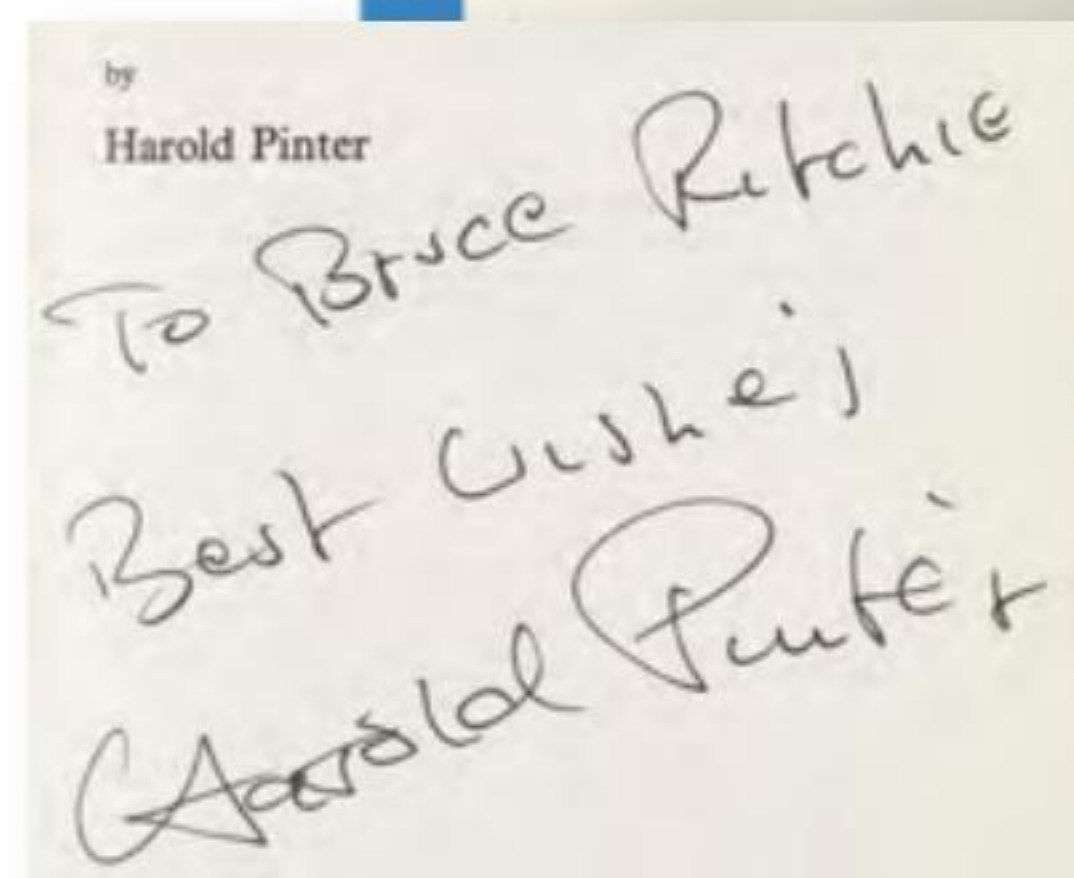 by
Harold Pinter
To Bruce Ritchie
Best Wishes
Harold Pinter